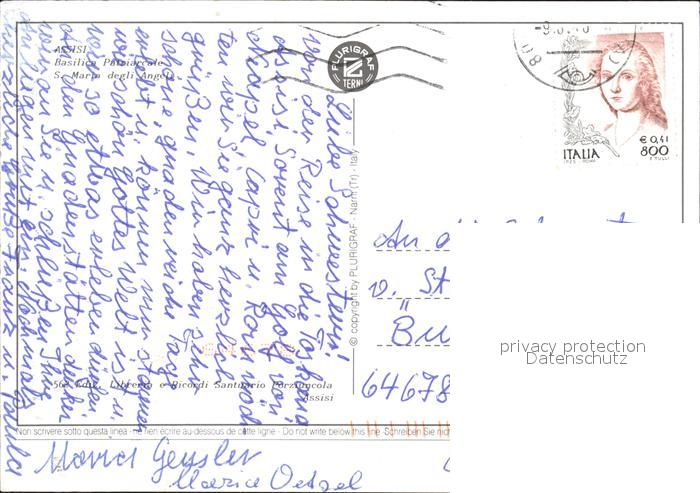 ASSISI
Basilica Patriarcale
S. Maria degli Angeli
PLURIGRAF
TERNI
€ 0,41
800
ITALIA
Liebe Schwestern!
von der Reise in die Toskana
Assisi, Sorent am Golf von
Neapel Capri u. Rom
ten wir Sie ganz herzlich
grüßen. Wir haben sehr
schöne gnadenreiche Tage
erlebt u. können nur staunen
wie schön Gottes Welt ist u.
wir so etwas erleben dürfen.
An den Gnadenstätten denken
wir an Sie u. schließen Ihre
Anliegen mit ein.
herzliche Grüße Franz u. Paula
Maria Geussler
Maria Oetzel
© copyright by PLURIGRAF - Narni (Tr) - Italy
An d
v. St
Bü
64678
562 Ediz. Libreria e Ricordi Santuario Porziuncola
Assisi
Non scrivere sotto questa linea - ne rien écrire au-dessous de cette ligne - Do not write below this line - Schreiben Sie nich
privacy protection
Datenschutz